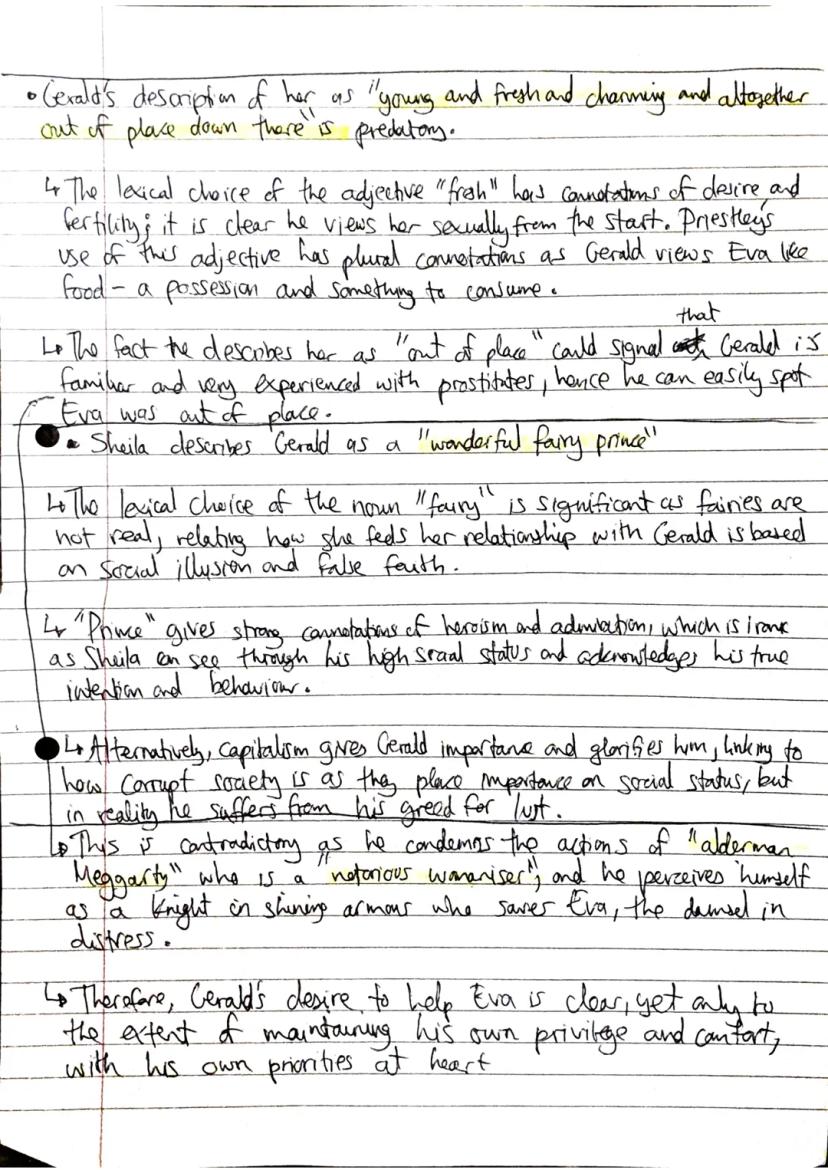 • Gerald's description of her as "young and fresh and charming and altogether
out of place down there" is predatory.
↳ The lexical choice of the adjective "fresh" has connotations of desire and
fertility; it is clear he views her sexually from the start. Priestley's
use of this adjective has plural connotations as Gerald views Eva like
food - a possession and something to consume.
that
↳ The fact he describes her as "out of place" could signal Gerald is
familiar and very experienced with prostitutes, hence he can easily spot
Eva was out of place.
• Sheila describes Gerald as a "wonderful fairy prince"
↳ The lexical choice of the noun "fairy" is significant as fairies are
not real, relating how she feels her relationship with Gerald is based
on social illusion and false faith.
↳ "Prince" gives strong connotations of heroism and admiration, which is ironic
as Sheila can see through his high social status and acknowledges his true
intention and behaviour.
↳ Alternatively, capitalism gives Gerald importance and glorifies him, linking to
how corrupt society is as they place importance on social status, but
in reality he suffers from his greed for lust.
↳ This is contradictory as he condemns the actions of "alderman
Meggarty" who is a "notorious womaniser", and he perceives himself
as a knight in shining armour who saves Eva, the damsel in
distress.
↳ Therefore, Gerald's desire to help Eva is clear, yet only to
the extent of maintaining his own privilege and comfort,
with his own priorities at heart